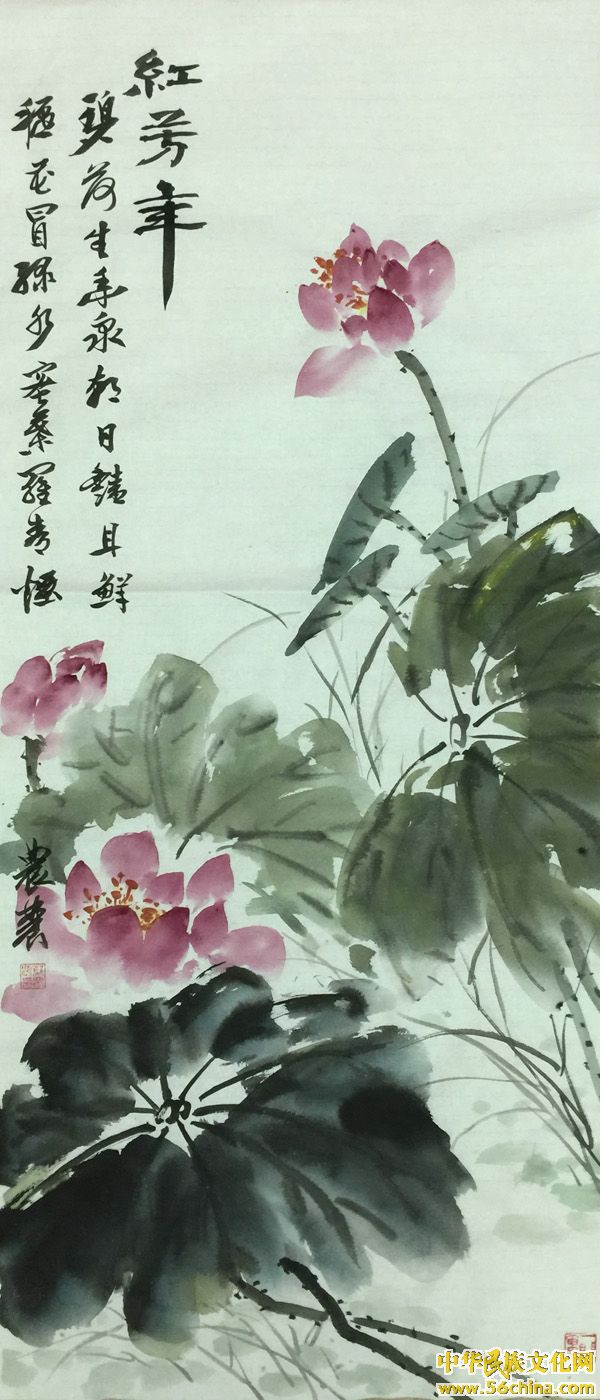 紅芳年
碧荷生幽泉朝日豔且鮮
穐花冒綠水密葉羅青煙
中华民族文化网
www.56china.com